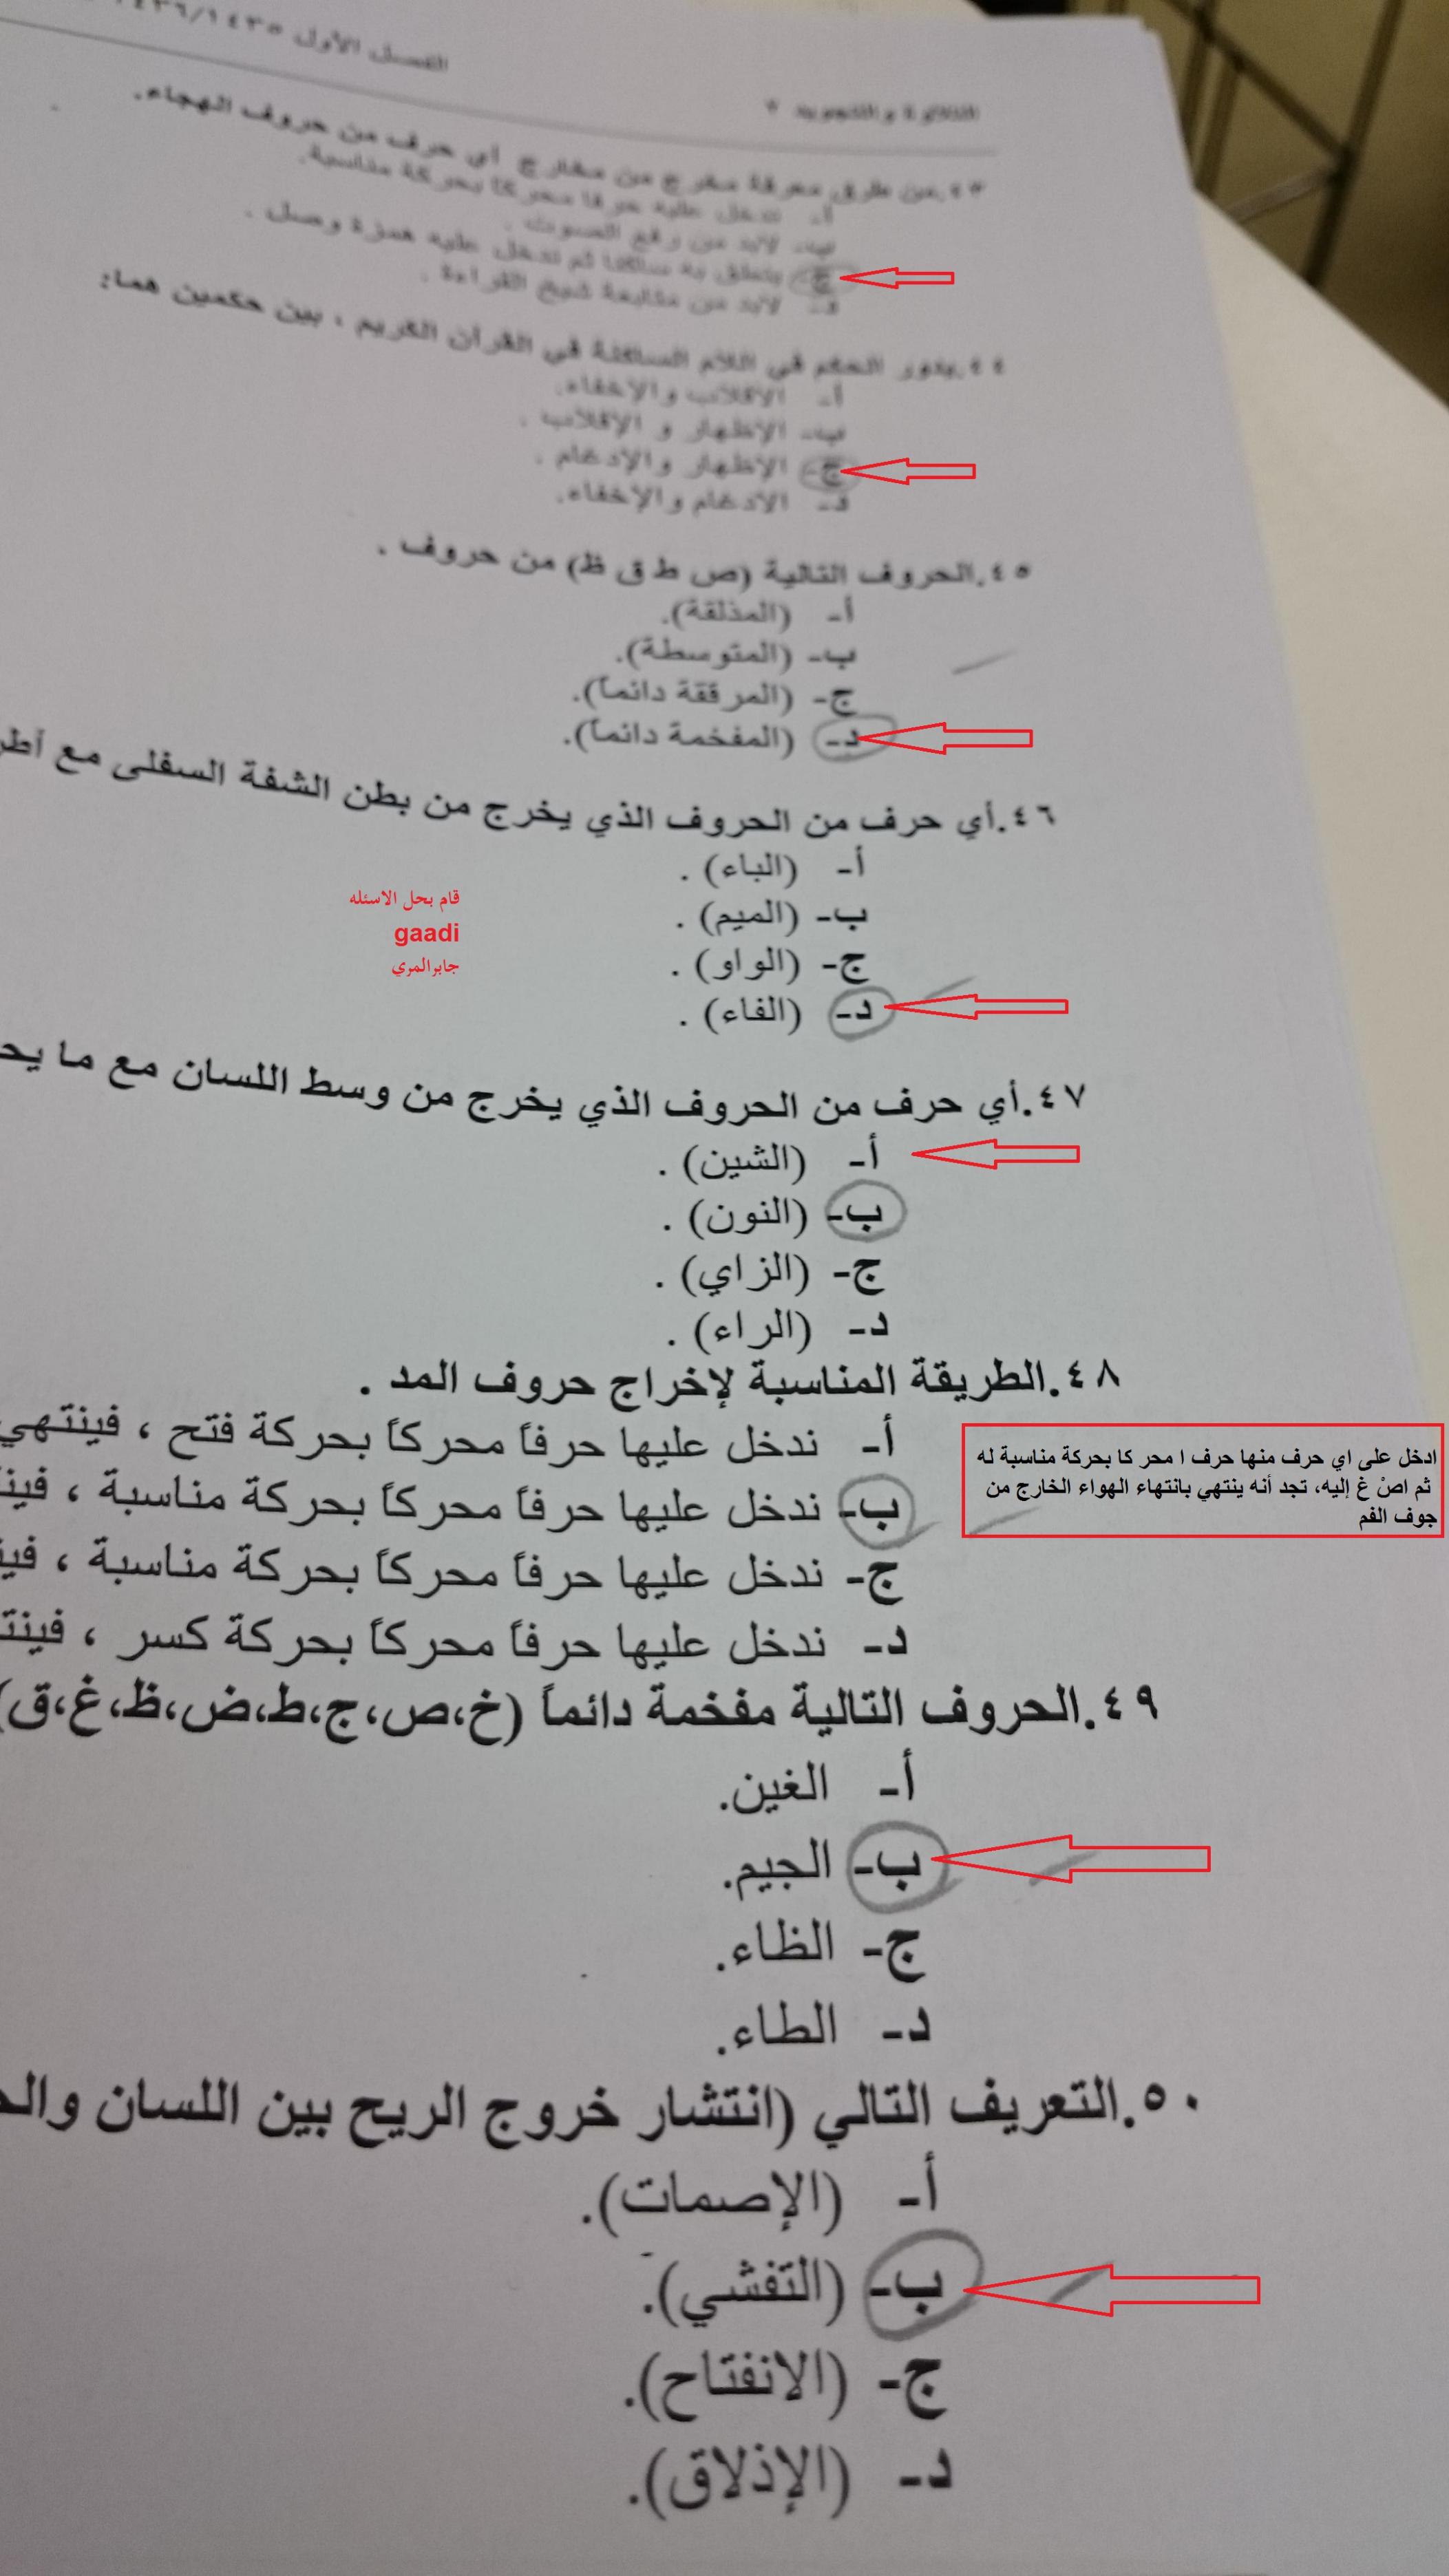 الفصل الأول ١٤٣٦/١٤٣٥
التلاوة والتجويد
٤٣.من طرق معرفة مخرج من مخارج أي حرف من حروف الهجاء.
أ- ندخل عليه حرفا محركا بحركة مناسبة.
ب- لابد من رفع الصوت .
ج- ينطق به ساكنا ثم ندخل عليه همزة وصل .
د- لابد من متابعة شيخ القراءة .
٤٤.يدور الحكم في اللام الساكنة في القرآن الكريم ، بين حكمين هما:
أ- الإقلاب والإخفاء.
ب- الإظهار و الإقلاب .
ج- الإظهار والإدغام .
د- الادغام والإخفاء.
٤٥.الحروف التالية (ص ط ق ظ) من حروف .
أ- (المذلقة).
ب- (المتوسطة).
ج- (المرققة دائماً).
د- (المفخمة دائماً).
٤٦.أي حرف من الحروف الذي يخرج من بطن الشفة السفلى مع
أ- (الباء) .
ب- (الميم) .
ج- (الواو) .
د- (الفاء) .
قام بحل الاسئله
gaadi
جابرالمري
٤٧.أي حرف من الحروف الذي يخرج من وسط اللسان مع ما
أ- (الشين) .
ب- (النون) .
ج- (الزاي) .
د- (الراء) .
٤٨.الطريقة المناسبة لإخراج حروف المد .
أ- ندخل عليها حرفاً محركاً بحركة فتح ، فينتهي
ب- ندخل عليها حرفاً محركاً بحركة مناسبة ،
ج- ندخل عليها حرفاً محركاً بحركة مناسبة ،
د- ندخل عليها حرفاً محركاً بحركة كسر ،
ادخل على اي حرف منها حرف ا محر كا بحركة مناسبة له
ثم اصْ غ إليه، تجد أنه ينتهي بانتهاء الهواء الخارج من
جوف الفم
٤٩.الحروف التالية مفخمة دائماً (خ،ص،ج،ط،ض،ظ،غ،ق)
أ- الغين.
ب- الجيم.
ج- الظاء.
د- الطاء.
٥٠.التعريف التالي (انتشار خروج الريح بين اللسان
أ- (الإصمات).
ب- (التفشي).
ج- (الانفتاح).
د- (الإذلاق).